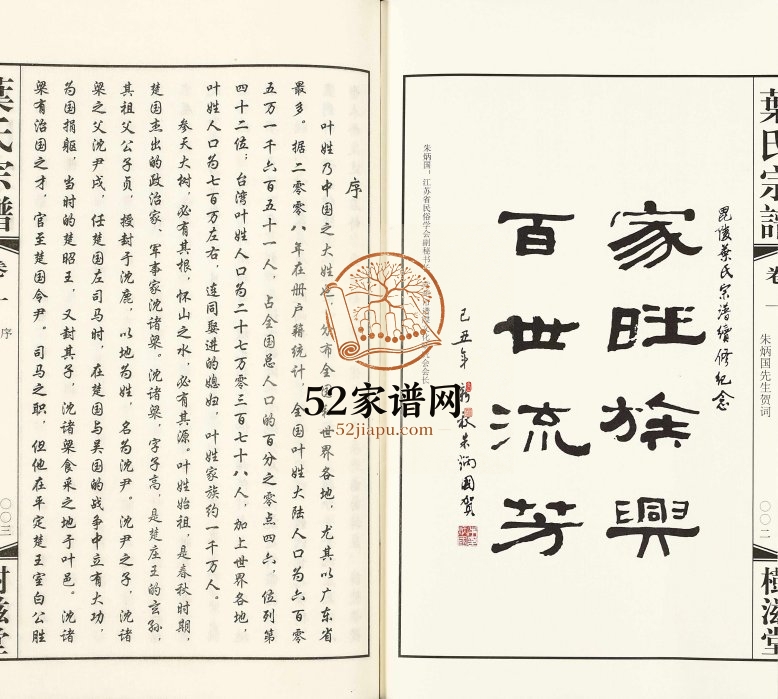 葉氏宗譜
卷一
朱炳国先生贺词
〇〇二
樹滋堂
毘陵葉氏宗譜續修紀念
家旺族興
百世流芳
己丑年新秋朱炳國贺
朱炳国：江苏省民俗学会副秘书长 会会长
序
叶姓乃中国之大姓 分布全国 世界各地，尤其以广东省
最多。据二零零八年在册户籍统计，全国叶姓大陆人口为六百零
五万一千六百五十一人，占全国总人口的百分之零点四六，位列第
四十二位；台湾叶姓人口为二十七万零三百七十八人，加上世界各地，
叶姓人口为七百万左右，连同娶进的媳妇，叶姓家族约一千万人。
参天大树，必有其根，怀山之水，必有其源。叶姓始祖，是春秋时期，
楚国杰出的政治家、军事家沈诸梁。沈诸梁，字子高，是楚庄王的玄孙，
其祖父公子贞，授封于沈鹿，以地为姓，名为沈尹。沈尹之子，沈诸
梁之父沈尹戌，任楚国左司马时，在楚国与吴国的战争中立有大功，
为国捐躯，当时的楚昭王，又封其子，沈诸梁食采之地于叶邑。沈诸
梁有治国之才，官至楚国令尹。司马之职，但他在平定楚王室白公胜
葉氏宗譜
卷一
序
〇〇三
樹滋堂
52家谱网
52jiapu.com